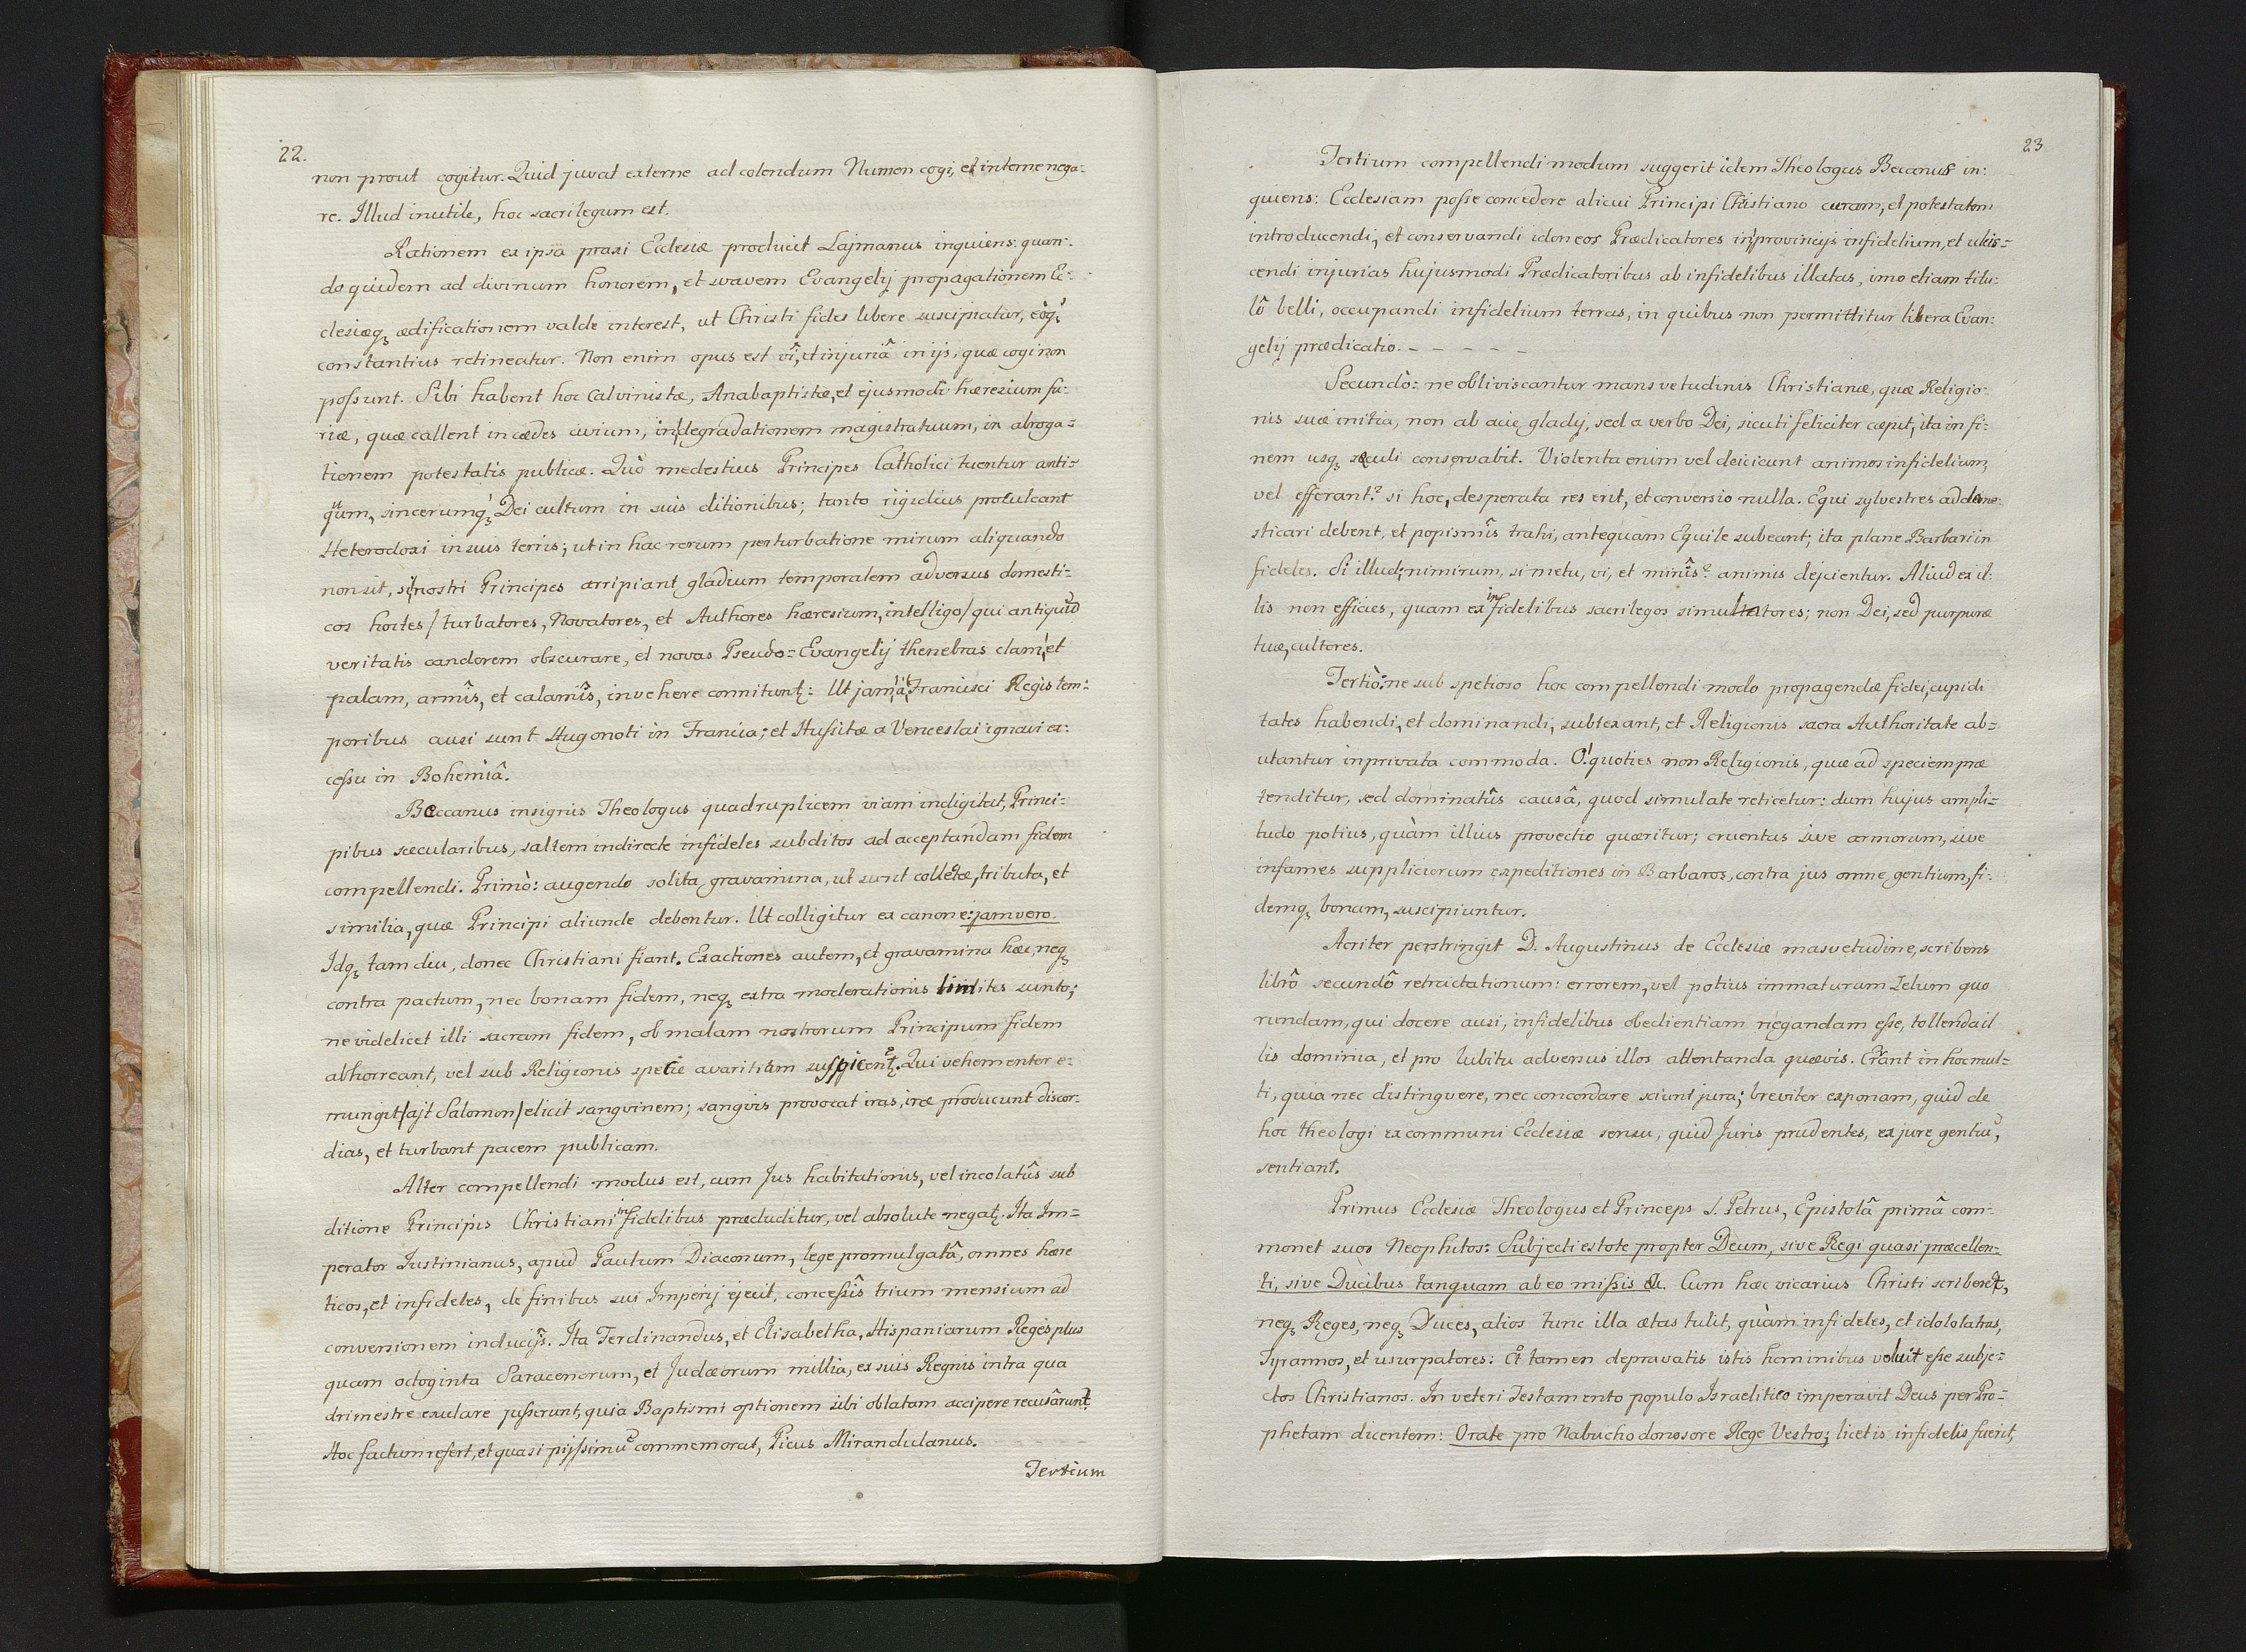 22.
non prout cogitur. Quid juvat externe ad colendum Numen cogi, et interne nega=
re. Illud inutile, hoc sacrilegum est.
Rationem ex ipsa praxi Ecclesiæ producit Lajmanus inquiens: quan=
do quidem ad divinum honorem, et suavem Evangelij propagationem Ec=
clesiæq₃ ædificationem valde interest, ut Christi fides libere suscipiatur, eoq₃
constantius retineatur. Non enim opus est vî, et injuriâ in ijs, quæ cogi non
possunt. Sibi habent hoc Calvinistæ, Anabaptistæ, et ejusmodi hæresium fu=
riæ, quæ callent in cædes civium, in degradationem magistratuum, in abroga=
tionem potestatis publicæ. Quò modestius Principes Catholici tuentur anti=
qūum, sincerumq₃ Dei cultum in suis ditionibus; tanto rigidius proculcant
Heterodoxi in suis terris; ut in hac rerum perturbatione mirum aliquando
non sit, si nostri Principes arripiant gladium temporalem adversus domesti=
cos hostes / turbatores, Novatores, et Authores hæresium, intelligo / qui antiquū
veritatis candorem obscurare, et novas Pseudo=Evangelij thenebras clam, et
palam, armîs, et calamîs, invehere connitunt₂: Ut jam à Francisci Regis tem=
poribus ausi sunt Hugonoti in Francia; et Hussitæ a Venceslai ignavi ex=
cessu in Bohemiâ.
Beccanus insignis Theologus quadruplicem viam indigitat, Princi=
pibus sæcularibus, saltem indirecte infideles subditos ad acceptandam fidem
compellendi. Primò: augendo solita gravamina, ut sunt collectæ, tributa, et
similia, quæ Principi aliunde debentur. Ut colligitur ex canone: jam vero.
Idq₃ tam diu, donec Christiani fiant. Exactiones autem, et gravamina hæc, neq₃
contra pactum, nec bonam fidem, neq₃ extra moderationis limites sunto;
ne videlicet illi sacram fidem, ob malam nostrorum Principum fidem
abhorreant, vel sub Religionis specie avaritiam suspicent₂. Qui vehementer e=
mungit / ajt Salomon / elicit sangvinem; sangvis provocat iras, iræ producunt discor=
dias, et turbant pacem publicam.
Alter compellendi modus est, cum Jus habitationis, vel incolatûs sub
ditione Principis Christiani infidelibus præcluditur, vel absolute negat₂. Ita Im=
perator Justinianus, apud Paulum Diaconum, lege promulgatâ, omnes hære
ticos, et infideles, de finibus sui Imperij ejecit, concessîs trium mensium ad
conversionem inducijs. Ita Ferdinandus, et Elisabetha, Hispaniarum Reges plus
quam octoginta Saracenorum, et Judæorum millia, ex suis Regnis intra qua
drimestre exulare jusserunt, quia Baptismi optionem sibi oblatam accipere recusârunt.
Hoc factum refert, et quasi pijssimū commemorat, Picus Mirandulanus.
Tertium
23
Tertium compellendi modum suggerit idem Theologus Becanus in=
quiens: Ecclesiam posse concedere alicui Principi Christiano curam, et potestatem
introducendi, et conservandi idoneos Prædicatores in provincijs infidelium, et ulcis=
cendi injurias hujusmodi Prædicatoribus ab infidelibus illatas, imo etiam titu=
lô belli, occupandi infidelium terras, in quibus non permittitur libera Evan=
gelij prædicatio. - - - - -
Secundò: ne obliviscantur mansvetudinis Christianæ, quæ Religio=
nis suæ initia, non ab acie gladij, sed a verbo Dei, sicuti feliciter cæpit, ita in fi=
nem usq₃ sæculi conservabit. Violenta enim vel deijciunt animos infidelium,
vel efferant? si hoc, desperata res erit, et conversio nulla. Equi sylvestres ad dome=
sticari debent, et popismîs trahi, antequam Equile subeant; ita plane Barbari in
fideles. Si illud; nimirum, si metu, vi, et minîs? animis dejicientur. Aliud ex il=
lis non efficies, quam ex infidelibus sacrilegos simulatores; non Dei, sed purpuræ
tuæ, cultores.
Tertiò: ne sub spetioso hoc compellendi modo propagendæ fidei, cupidi
tates habendi, et dominandi, subtexant, et Religionis sacra Authoritate ab=
utantur in privata commoda. O! quoties non Religionis, quæ ad speciem præ
tenditur, sed dominatûs causâ, quod simulate reticetur: dum hujus ampli=
tudo potius, quàm illius provectio quæritur; cruentas sive armorum, sive
infames suppliciorum expeditiones in Barbaros, contra jus omne gentium, fi=
demq₃ bonam, suscipiuntur.
Acriter perstringit D. Augustinus de Ecclesiæ masvetudine, scribens
librô secundô retractationum: errorem, vel potius immaturum Zelum quo
rundam, qui docere ausi, infidelibus obedientiam negandam esse, tollenda il
lis dominia, et pro lubitu adversus illos attentanda quævis. Errant in hoc mul=
ti, quia nec distingvere, nec concordare sciunt jura; breviter exponam, quid de
hoc theologi ex communi Ecclesiæ sensu, quid Juris prudentes, ex jure gentiū,
sentiant.
Primus Ecclesiæ Theologus et Princeps S. Petrus, Epistolâ primâ com=
monet suos Neophitos: Subjecti estote propter Deum, sive Regi quasi præcellen=
ti, sive Ducibus tanquam ab eo missis &. Cum hæc vicarius Christi scriberet,
neq₃ Reges, neq₃ Duces, alios tunc illa ætas tulit, quàm infideles, et idololatras,
Tyrannos, et usurpatores: Et tamen depravatis istis hominibus voluit esse subje=
ctos Christianos. In veteri Testamento populo Israelitico imperavit Deus per Pro=
phetam dicentem: Orate pro Nabuchodonosore Rege Vestro; licet is infidelis fuerit,